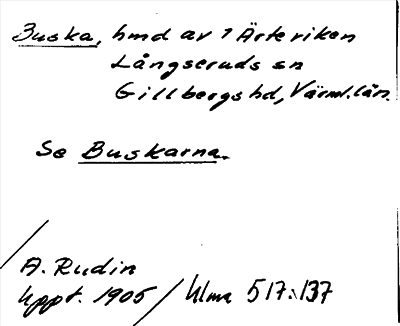 Buska, hmd av 1 Ärteriken
Långseruds sn
Gillbergs hd, Värml. län.
Se Buskarna.
A. Rudin
Uppt. 1905 / Ulma 517:137